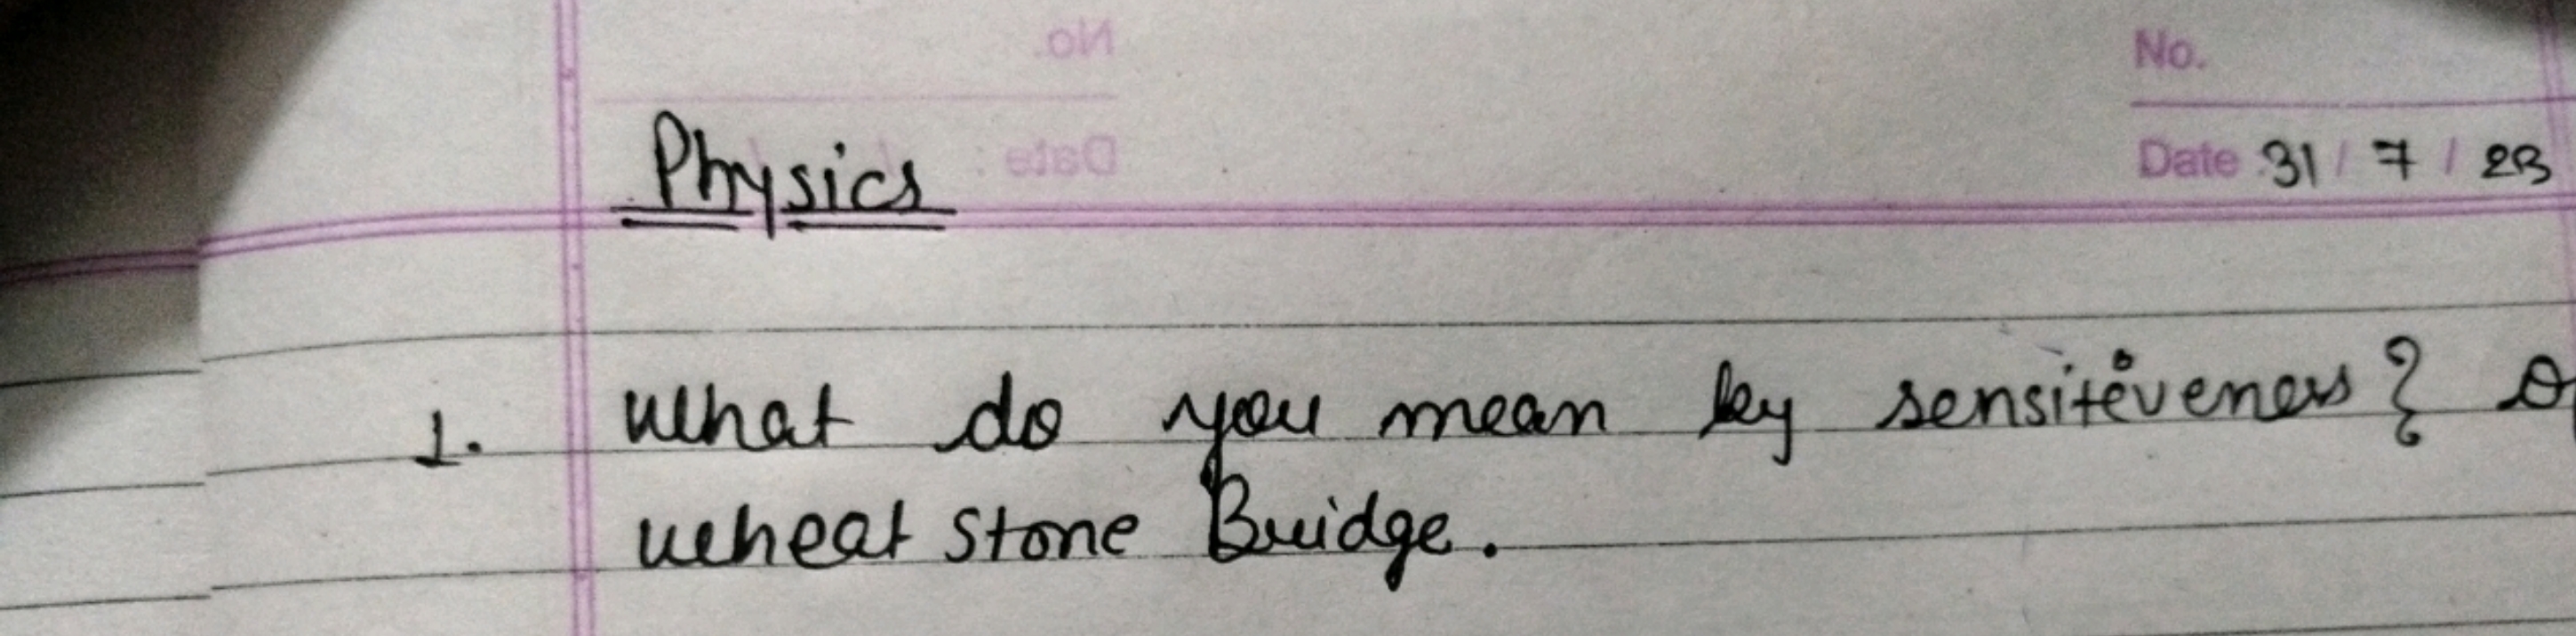 No.
Date 31 / 7 / 23
Physics
1. What do you mean by sensitiveness? of
wheat stone Bridge.